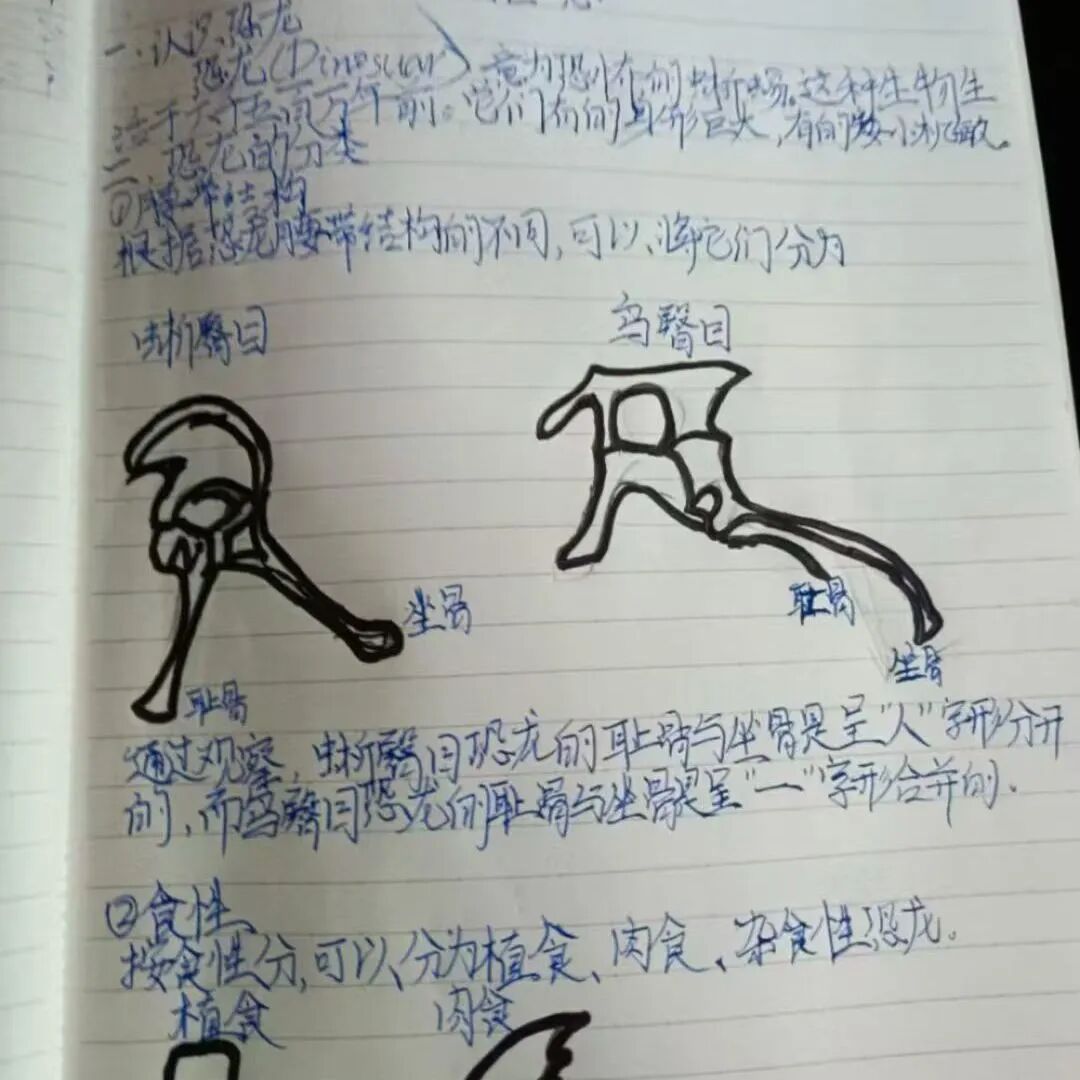 一、认识恐龙
恐龙(Dinosuar)意为恐怖的蜥蜴。这种生物生
活于六千五百万年前。它们有的身形巨大,有的矮小机敏。
二 恐龙的分类
①腰带结构
根据恐龙腰带结构的不同,可以将它们分为
蜥臀目 鸟臀目
坐骨
耻骨
坐骨
耻骨
通过观察,蜥臀目恐龙的耻骨与坐骨是呈"人"字形分开
的,而鸟臀目恐龙的耻骨与坐骨是呈"一"字形合并的.
②食性
按食性分,可以分为植食、肉食、杂食性恐龙。
植食 肉食